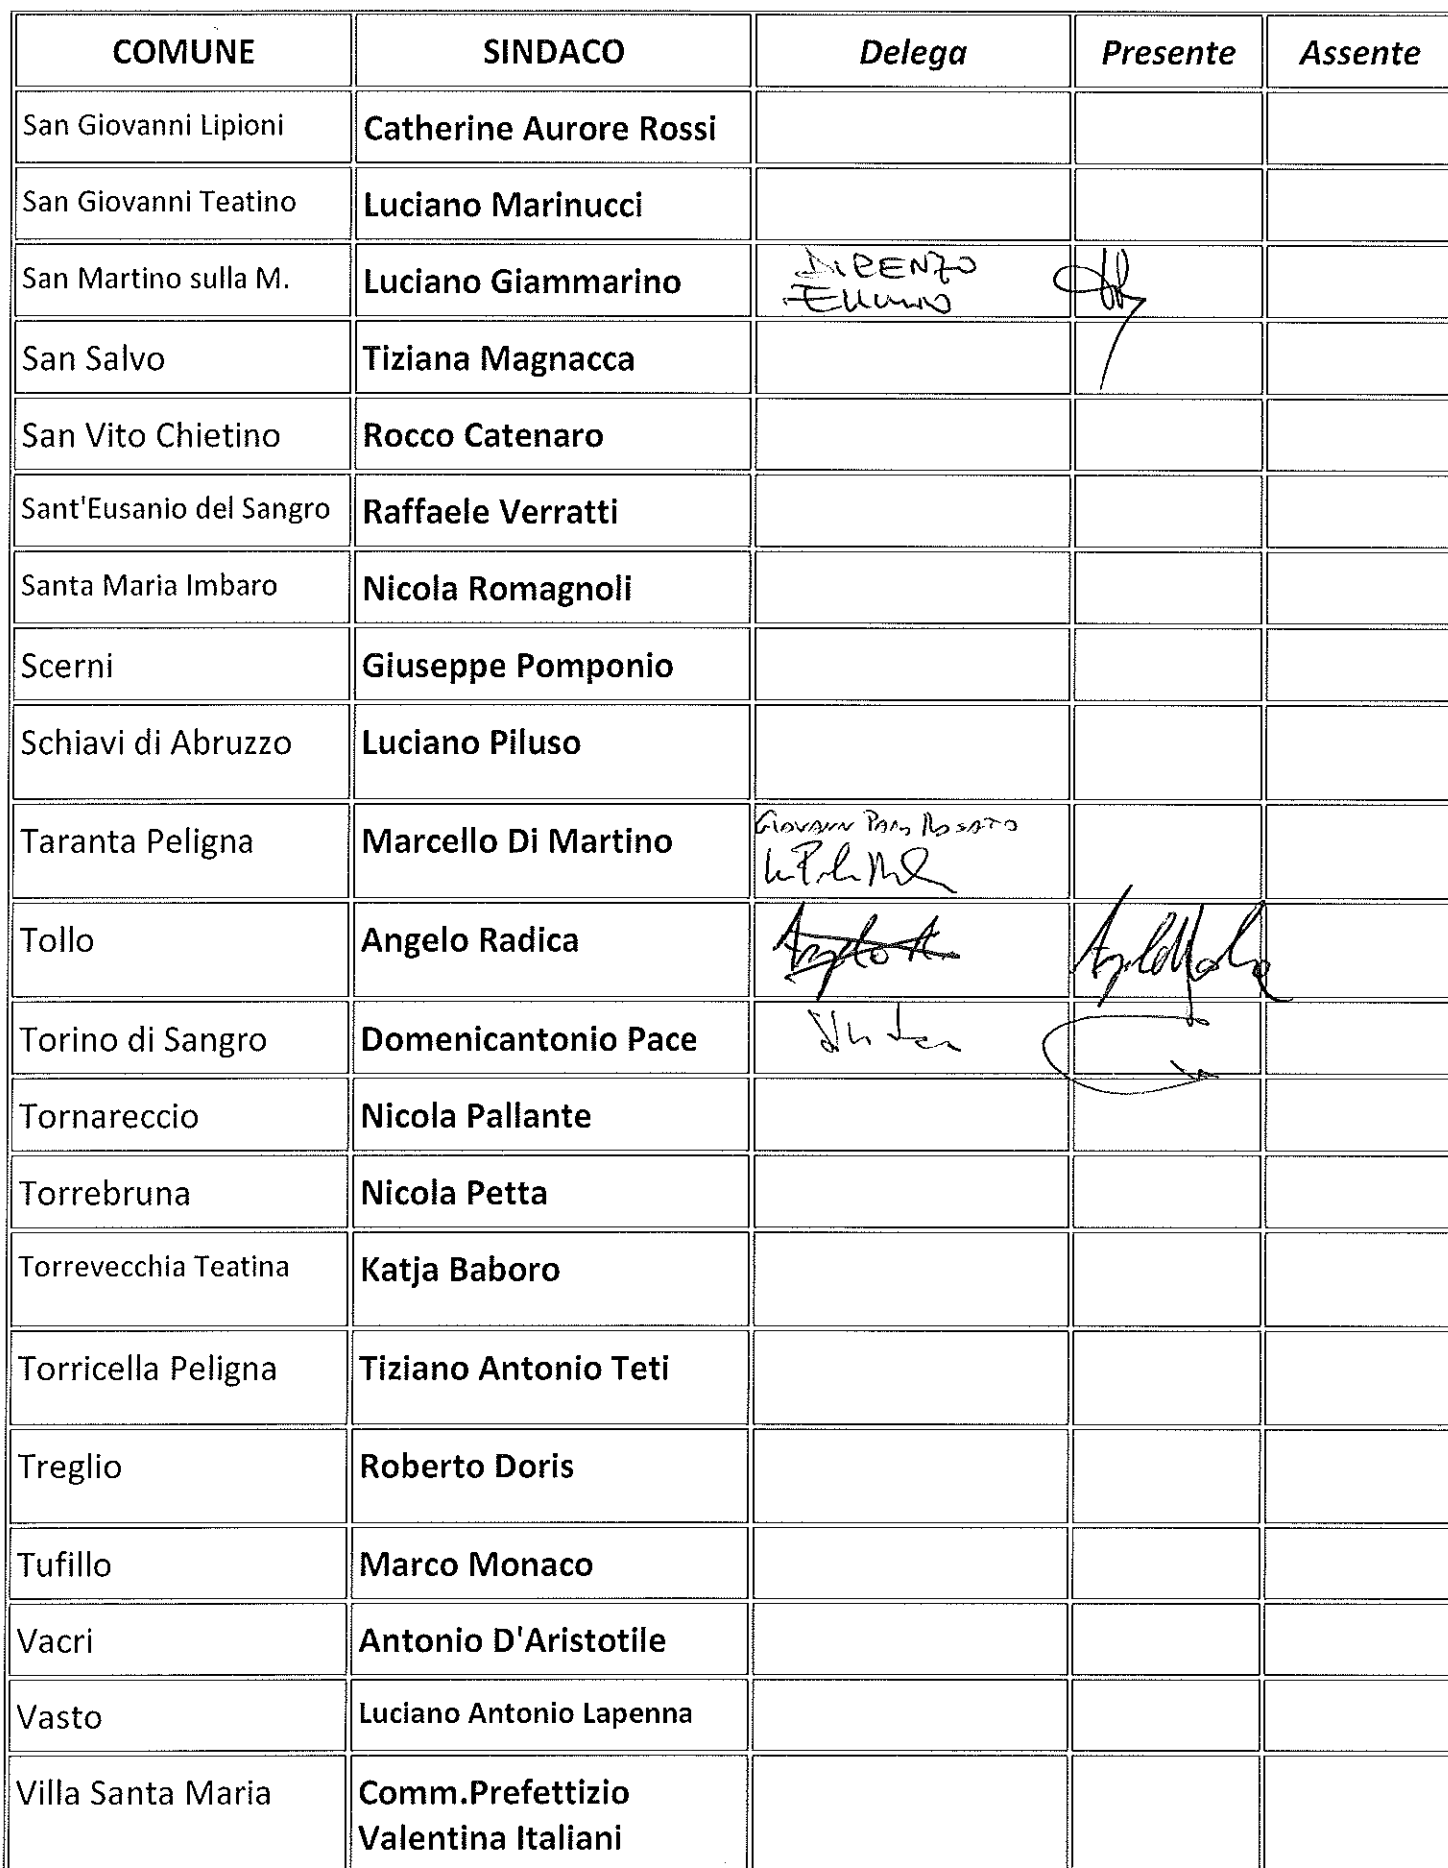 COMUNE SINDACO Delega Presente Assente
San Giovanni Lipioni Catherine Aurore Rossi
San Giovanni Teatino Luciano Marinucci
San Martino sulla M. Luciano Giammarino DIRENZO
San Salvo Tiziana Magnacca
San Vito Chietino Rocco Catenaro
Sant'Eusanio del Sangro Raffaele Verratti
Santa Maria Imbaro Nicola Romagnoli
Scerni Giuseppe Pomponio
Schiavi di Abruzzo Luciano Piluso
Taranta Peligna Marcello Di Martino ROSATO
Tollo Angelo Radica Angelo
Torino di Sangro Domenicantonio Pace
Tornareccio Nicola Pallante
Torrebruna Nicola Petta
Torrevecchia Teatina Katja Baboro
Torricella Peligna Tiziano Antonio Teti
Treglio Roberto Doris
Tufillo Marco Monaco
Vacri Antonio D'Aristotile
Vasto Luciano Antonio Lapenna
Villa Santa Maria Comm.Prefettizio
Valentina Italiani